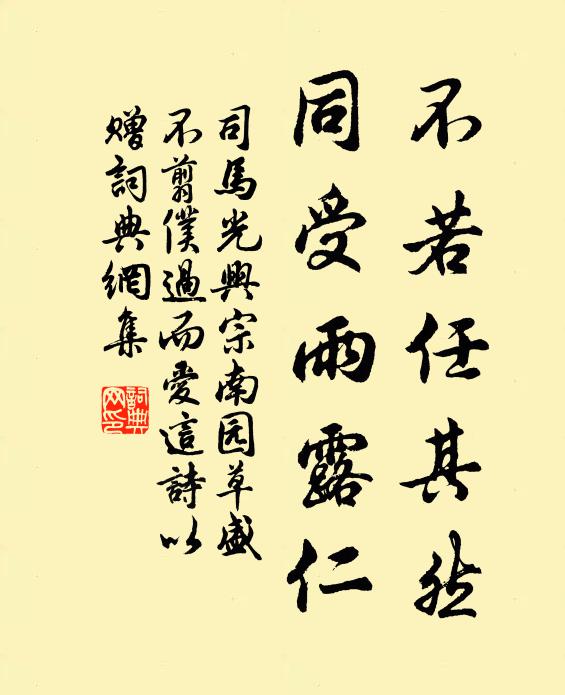 不若任其然
同受雨露仁
司馬光興宗南园草盛
不翦僕過而愛這詩以
贈詞典網集
詞典
网印